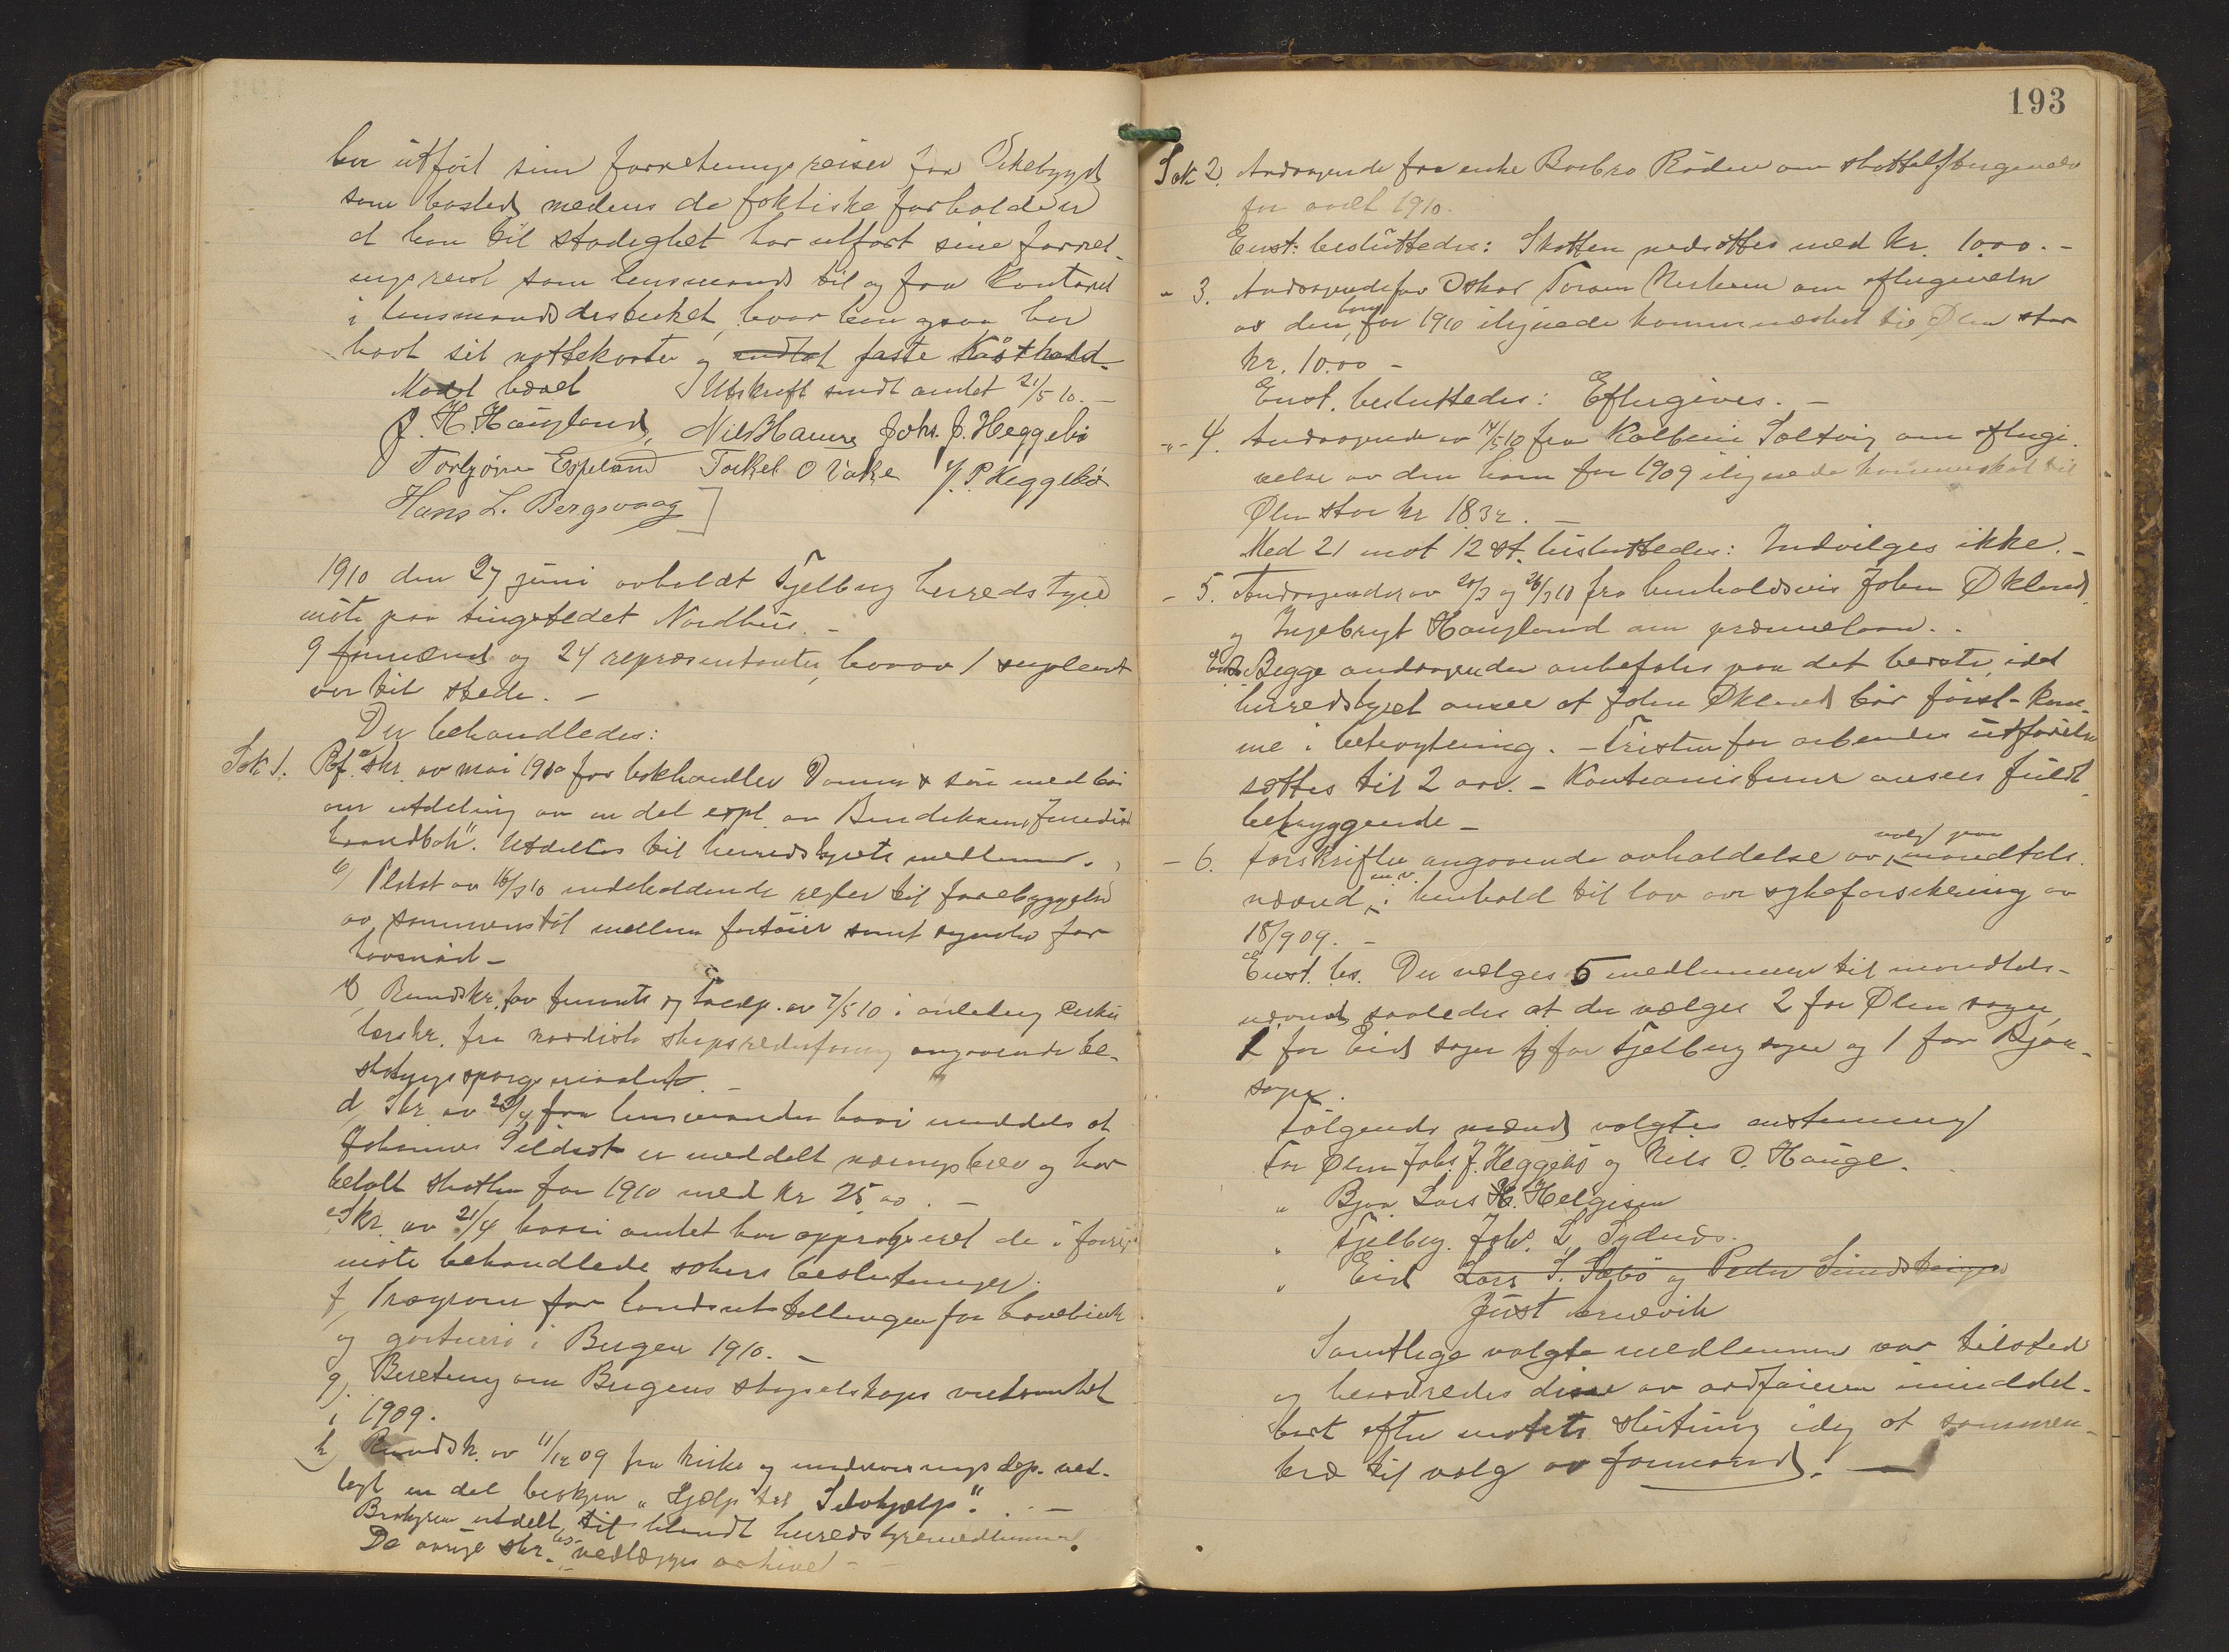 har utført sine forretningsreiser fra Vikebygd
som bosted, medens de faktiske forhold er
at han til stadighet har utført sine forret-
ningsreiser som lensmand til og fra kontoret
i lensmandsdistriktet, hvor han ogsaa har
havt sit nattekvarter og faste kosthold.
Møtet hævet Utskrift sendt amtet 21/5 10. -
J. H. Haugland, Nils Hamre Johs. J. Heggebø
Torbjørn Espeland Torkel O Vake P. Heggebø
Hans L. Bergsvaag
1910 den 27 juni avholdt Fjelberg herredstyre
møte paa tingstedet Nordhus. -
9 formænd og 24 repræsentanter, hvorav 1 supleant
var til stede. -
Der behandledes:
Sak 1. Ref. a) skr. av mai 1910 fra bokhandler Damm & søn med bøn
om utdeling av en del expl. av Bendiksens "
haandbok". Utdeltes til herredstyrets medlemmer.
b) Plakat av 16/3 10 indeholdende regler til forebyggelse
av sammenstøt mellem fartøier samt signaler for
havsnød -
c) Rundskr. fra finants og tolddep. av 7/5 10 i anledng cirku
lærskr. fra nordisk skipsrederforeng angaaende be-
skatningsspørgsmaalet. -
d, Skr. av 23/4 fra lensmanden hvori meddels at
Johannes Sildnes er meddelt næringsbrev og har
betalt skatten for 1910 med kr 25,00. -
e, Skr. av 21/4 hvori amtet har approberet de i forrige
møte behandlede sakers beslutninger.
f, Program for landsutstillingen for havebruk
og gartneri i Bergen 1910. -
g). Beretning om Bergens skogselskaps virksomhet
i 1909.
h, Rundsk. av 11/12 09 fra kirke og undervisningsdep. ved-
lagt en del brosjyrer "Hjælp til Selvhjælp". -
Brosjyren utdelt til blandt herredstyremedlemmer.
De øvrige skr. vedlægges arkivet -
193
Sak 2. Andragende fra enke Barbro Røden om skatteeftergivelse
for aaret 1910.
Enst. besluttedes: Skatten nedsættes med kr. 10.00. -
- 3. Andragende fra Oskar Toraen om eftergivelse
av den ham for 1910 ilignede kommuneskat til Ølen stor
kr. 10.00 -
Enst. besluttedes: Eftergives. -
- 4. Andragende av 14/5 10 fra Kolbein Saltvig om eftergi-
velse av den ham for 1909 ilignede kommuneskat til
Ølen stor kr 18.32. -
Med 21 mot 12 st. besluttedes: Indvilges ikke. -
- 5. Andragender av 20/3 og 26/3 10 fra henholdsvis John Økland
og Ingebrygt Haugland om præmielaan. -
Enst. Begge andragender anbefales paa det beste, idet
herredstyret anser at John Økland bør først kom-
me i betragtning. - Fristen for arbeidets utførelse
sættes til 2 aar. - Kautionisterne ansees fuldt
betryggende -
- 6. Forskrifter angaaende avholdelse av valg paa mandtals-
nævnd m. v. i henhold til lov om sykeforsikring av
18/9 09. -
Enst. bes. Der vælges 5 medlemmer til mandtals-
nævnd saaledes at der vælges 2 for Ølen sogn,
1 for Eid sogn 1 for Fjelberg sogn og 1 for Bjoa
sogn.
Følgende mænd valgtes enstemmig
For Ølen Johs. J. Heggebø og Nils O. Hauge.
" Bjoa Lars H. Helgesen
" Fjelberg. Johs. L. Sydnes.
" Eid Lars S. Sæbø og Peder
Just
Samtlige valgte medlemmer var tilstede
og beordredes disse av ordføreren umiddel-
bart efter møtets slutning idag at sammen-
træ til valg av formand. -